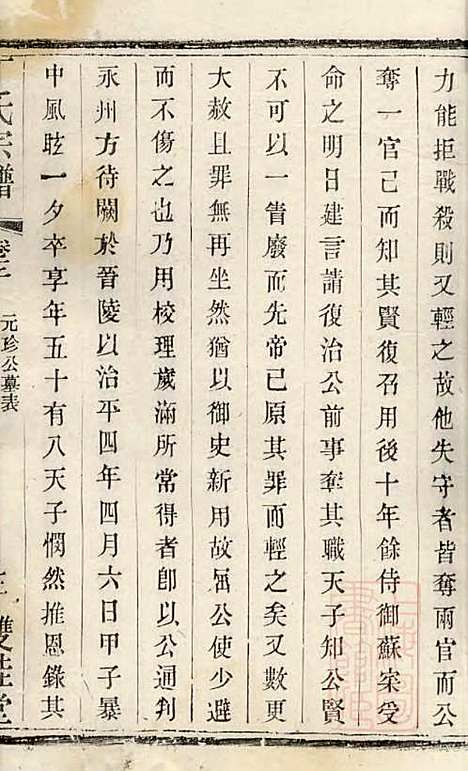 力能拒戰殺則又輕之故他失守者皆奪兩官而公
奪一官已而知其賢復召用後十年餘侍御蘇寀受
命之明日建言請復治公前事奪其職天子知公賢
不可以一眚廢而先帝已原其罪而輕之矣又數更
大赦且罪無再坐然猶以御史新用故屈公使少避
而不傷之也乃用校理歲滿所當得者卽以公通判
永州方待闕於晉陵以治平四年四月六日甲子暴
中風眩一夕卒享年五十有八天子憫然推恩錄其
丁氏宗譜
元珍公墓表
雙桂堂